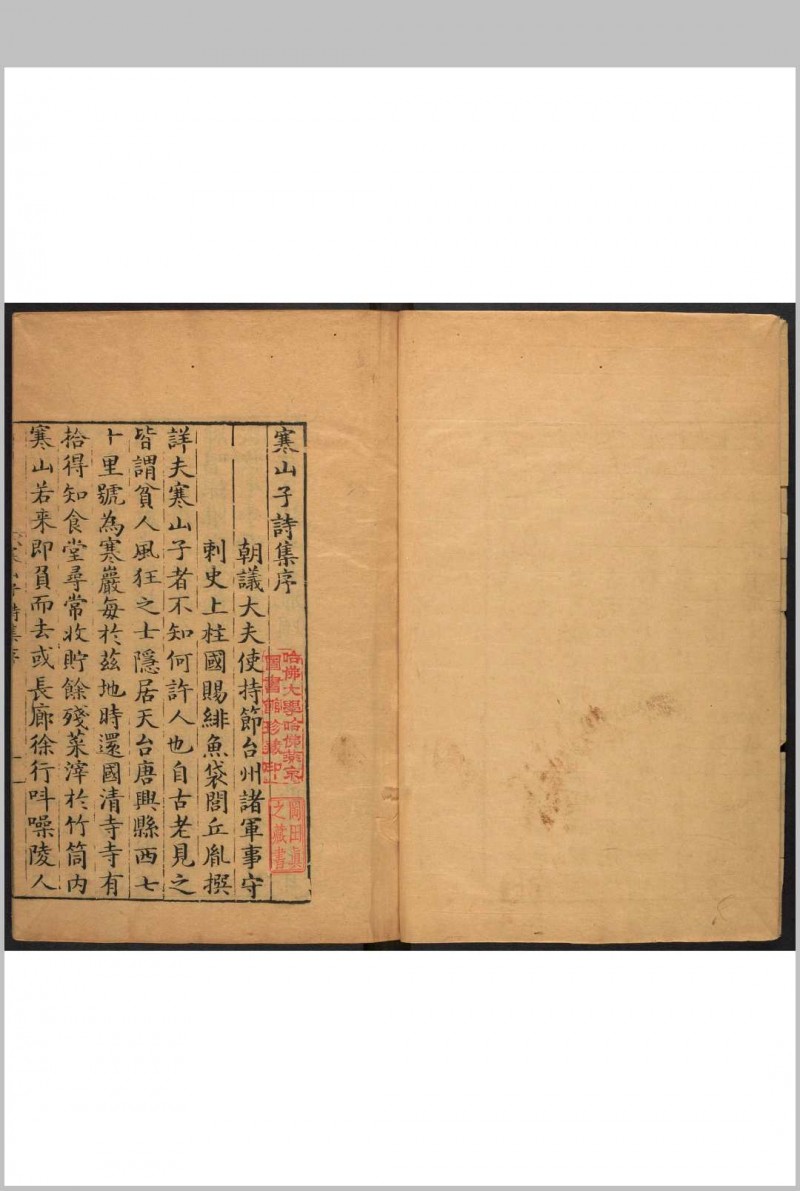 寒山子詩集序
朝議大夫使持節台州諸軍事守
刺史上柱國賜緋魚袋閭丘胤撰
詳夫寒山子者不知何許人也自古老見之
皆謂貧人風狂之士隱居天台唐興縣西七
十里號為寒巖每於茲地時還國清寺寺有
拾得知食堂尋常收貯餘殘菜滓於竹筒內
寒山若來即負而去或長廊徐行呌噪陵人
寒山子詩集序
一
哈佛大學哈佛燕京
圖書館珍藏印
岡田真
之藏書